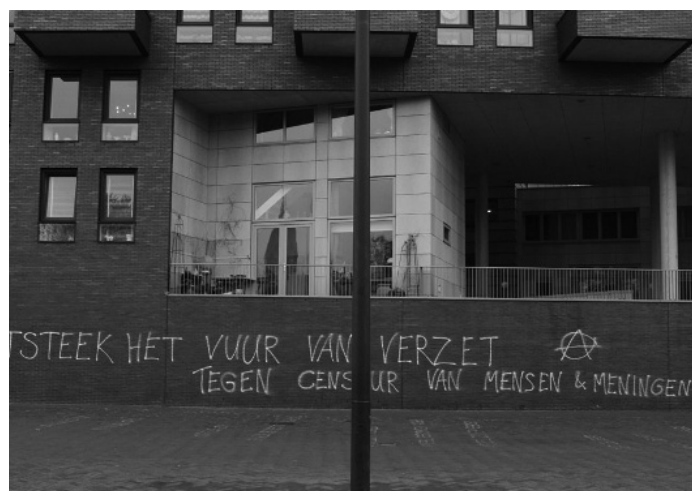 TSTEEK HET VUUR VAN VERZET
TEGEN CENSUUR VAN MENSEN & MENINGEN